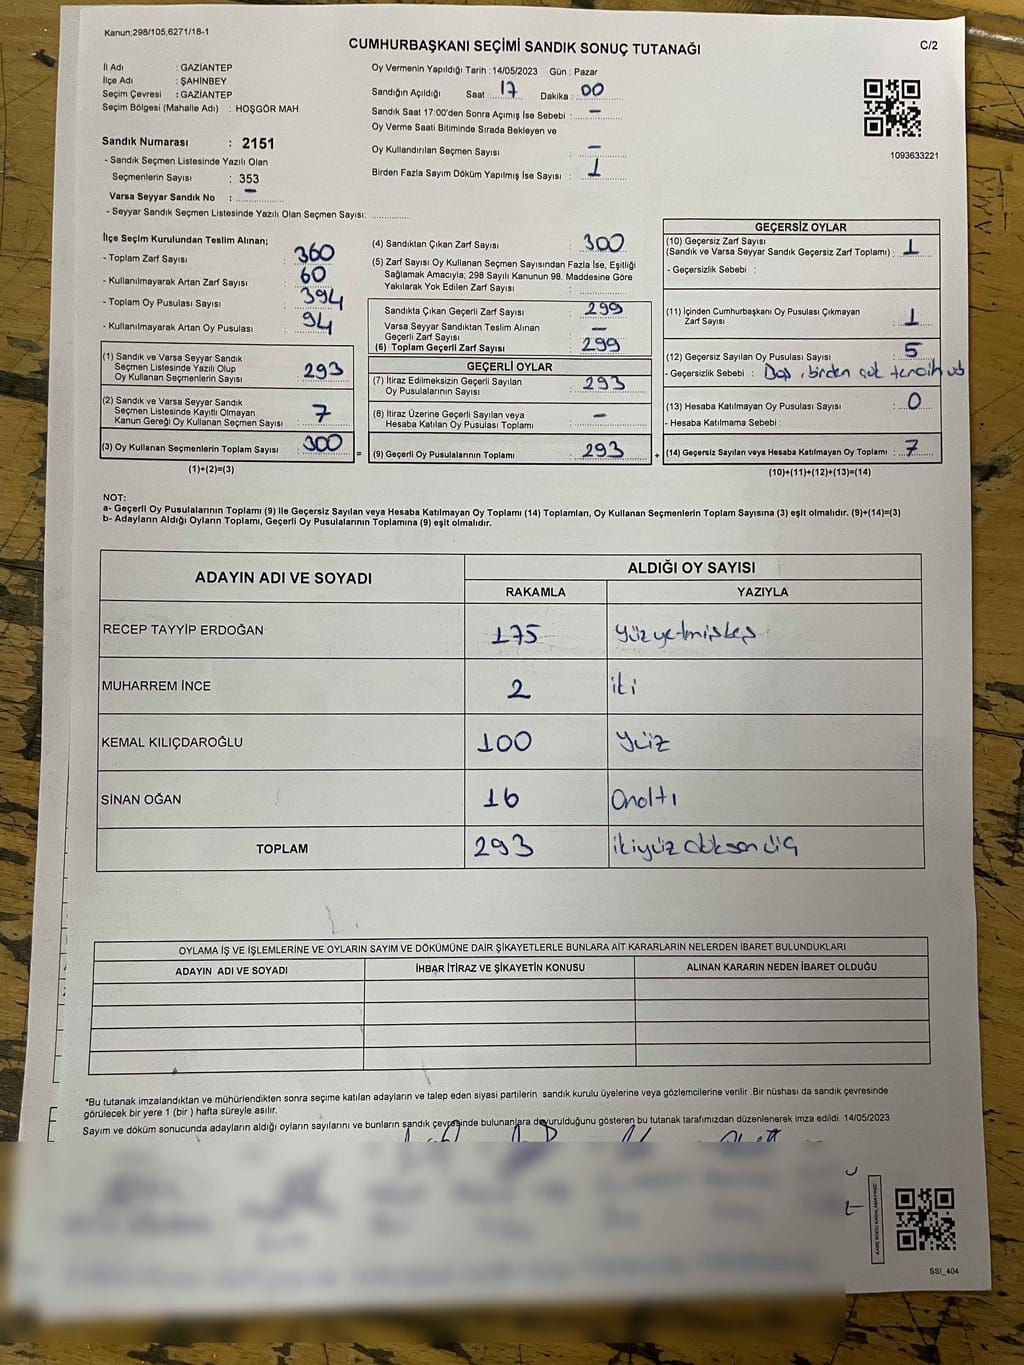 Kanun;298/105,6271/18-1
CUMHURBAŞKANI SEÇİMİ SANDIK SONUÇ TUTANAĞI
C/2
İl Adı : GAZİANTEP
İlçe Adı : ŞAHİNBEY
Seçim Çevresi : GAZİANTEP
Seçim Bölgesi (Mahalle Adı) : HOŞGÖR MAH.
Sandık Numarası : 2151
- Sandık Seçmen Listesinde Yazılı Olan
Seçmenlerin Sayısı : 353
Varsa Seyyar Sandık No : –
- Seyyar Sandık Seçmen Listesinde Yazılı Olan Seçmen Sayısı: ............
Oy Vermenin Yapıldığı Tarih : 14/05/2023 Gün : Pazar
Sandığın Açıldığı Saat : 17 Dakika : 00
Sandık Saat 17:00'den Sonra Açımış İse Sebebi : –
Oy Verme Saati Bitiminde Sırada Bekleyen ve
Oy Kullandırılan Seçmen Sayısı : –
Birden Fazla Sayım Döküm Yapılmış İse Sayısı : 1
1093633221
İlçe Seçim Kurulundan Teslim Alınan;
- Toplam Zarf Sayısı : 360
- Kullanılmayarak Artan Zarf Sayısı : 60
- Toplam Oy Pusulası Sayısı : 394
- Kullanılmayarak Artan Oy Pusulası : 94
(1) Sandık ve Varsa Seyyar Sandık
Seçmen Listesinde Yazılı Olup
Oy Kullanan Seçmenlerin Sayısı : 293
(2) Sandık ve Varsa Seyyar Sandık
Seçmen Listesinde Kayıtlı Olmayan
Kanun Gereği Oy Kullanan Seçmen Sayısı : 7
(3) Oy Kullanan Seçmenlerin Toplam Sayısı : 300
(1)+(2)=(3)
=
(4) Sandıktan Çıkan Zarf Sayısı : 300
(5) Zarf Sayısı Oy Kullanan Seçmen Sayısından Fazla İse, Eşitliği
Sağlamak Amacıyla; 298 Sayılı Kanunun 98. Maddesine Göre
Yakılarak Yok Edilen Zarf Sayısı :
Sandıkta Çıkan Geçerli Zarf Sayısı : 299
Varsa Seyyar Sandıktan Teslim Alınan
Geçerli Zarf Sayısı : –
(6) Toplam Geçerli Zarf Sayısı : 299
GEÇERLİ OYLAR
(7) İtiraz Edilmeksizin Geçerli Sayılan
Oy Pusulalarının Sayısı : 293
(8) İtiraz Üzerine Geçerli Sayılan veya
Hesaba Katılan Oy Pusulası Toplamı : –
(9) Geçerli Oy Pusulalarının Toplamı : 293
+
GEÇERSİZ OYLAR
(10) Geçersiz Zarf Sayısı
(Sandık ve Varsa Seyyar Sandık Geçersiz Zarf Toplamı) : 1
- Geçersizlik Sebebi :
(11) İçinden Cumhurbaşkanı Oy Pusulası Çıkmayan
Zarf Sayısı : 1
(12) Geçersiz Sayılan Oy Pusulası Sayısı : 5
- Geçersizlik Sebebi : Boş, birden çok tercih
(13) Hesaba Katılmayan Oy Pusulası Sayısı : 0
- Hesaba Katılmama Sebebi :
(14) Geçersiz Sayılan veya Hesaba Katılmayan Oy Toplamı : 7
(10)+(11)+(12)+(13)=(14)
NOT:
a- Geçerli Oy Pusulalarının Toplamı (9) ile Geçersiz Sayılan veya Hesaba Katılmayan Oy Toplamı (14) Toplamları, Oy Kullanan Seçmenlerin Toplam Sayısına (3) eşit olmalıdır. (9)+(14)=(3)
b- Adayların Aldığı Oyların Toplamı, Geçerli Oy Pusulalarının Toplamına (9) eşit olmalıdır.
ADAYIN ADI VE SOYADI
ALDIĞI OY SAYISI
RAKAMLA YAZIYLA
RECEP TAYYİP ERDOĞAN 175 Yüzyetmişbeş
MUHARREM İNCE 2 iki
KEMAL KILIÇDAROĞLU 100 Yüz
SİNAN OĞAN 16 Onaltı
TOPLAM 293 ikiyüz doksan üç
OYLAMA İŞ VE İŞLEMLERİNE VE OYLARIN SAYIM VE DÖKÜMÜNE DAİR ŞİKAYETLERLE BUNLARA AİT KARARLARIN NELERDEN İBARET BULUNDUKLARI
ADAYIN ADI VE SOYADI İHBAR İTİRAZ VE ŞİKAYETİN KONUSU ALINAN KARARIN NEDEN İBARET OLDUĞU
*Bu tutanak imzalandıktan ve mühürlendikten sonra seçime katılan adayların ve talep eden siyasi partilerin sandık kurulu üyelerine veya gözlemcilerine verilir .Bir nüshası da sandık çevresinde
görülecek bir yere 1 (bir ) hafta süreyle asılır.
Sayım ve döküm sonucunda adayların aldığı oyların sayılarını ve bunların sandık çevresinde bulunanlara duyurulduğunu gösteren bu tutanak tarafımızdan düzenlenerek imza edildi. 14/05/2023
KARE KODU KARALAMAYINIZ!
SSI_404